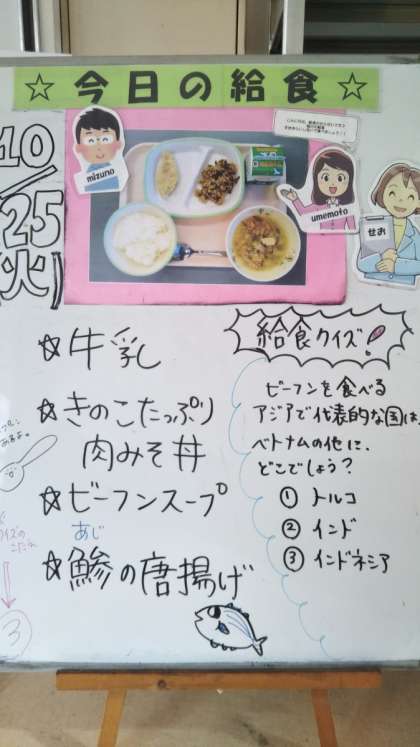 ☆今日の給食☆
10/25(火)
mizuno
umemoto
せお
☆牛乳
☆きのこたっぷり
肉みそ丼
☆ビーフンスープ
あじ
☆鯵の唐揚げ
給食クイズ!
ビーフンを食べる
アジアで代表的な国は、
ベトナムの他に、
どこでしょう？
① トルコ
② インド
③ インドネシア
クイズの
こたえ
③